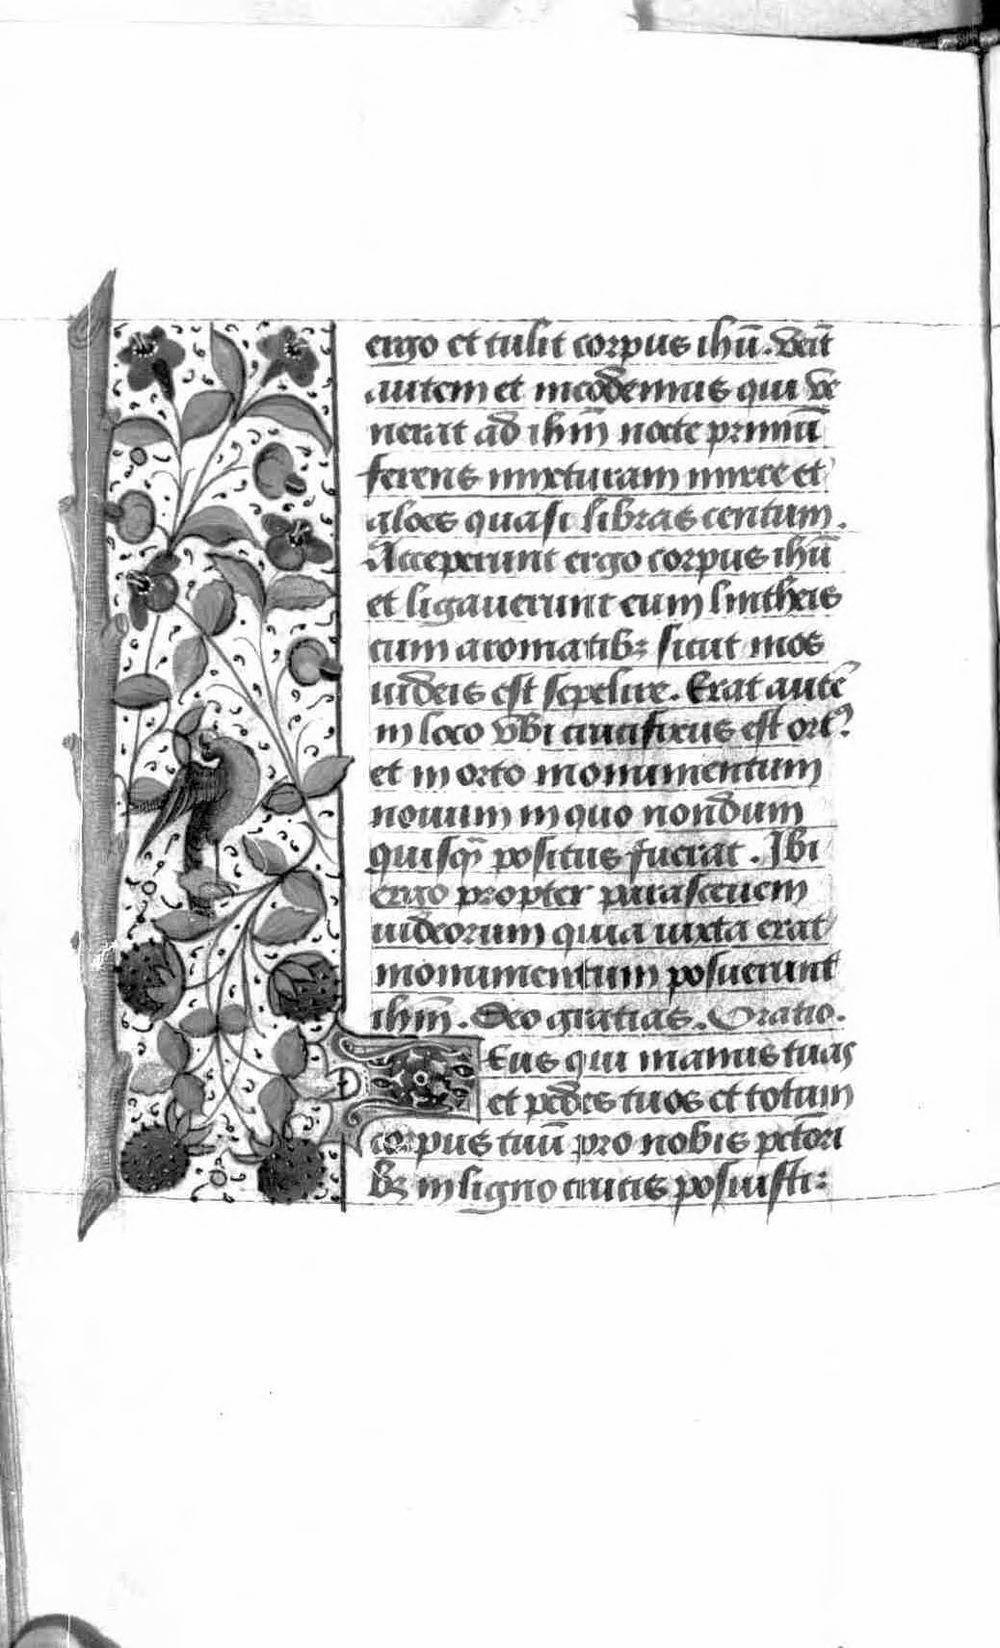 ergo et tulit corpus ihū. Veīt
autem et nicodemus qui ve
nerat ad ihm̄ nocte primū
ferens mixturam mirre et
aloes quasi libras centum.
Acceperunt ergo corpus ihū
et ligauerunt eum lintheis
cum aromatibꝫ sicut mos
iudeis est sepelire. Erat autē
in loco vbi crucifixus est ortꝰ
et in orto monumentum
nouum in quo nondum
quisqꝫ positus fuerat. Ibi
ergo propter parasceuem
iudeorum quia iuxta erat
monumentum posuerunt
ihm̄. Deo gratias. Oratio.
Deus qui manus tuas
et pedes tuos et totum
corpus tuū pro nobis pctori
bꝫ in ligno crucis posuisti: